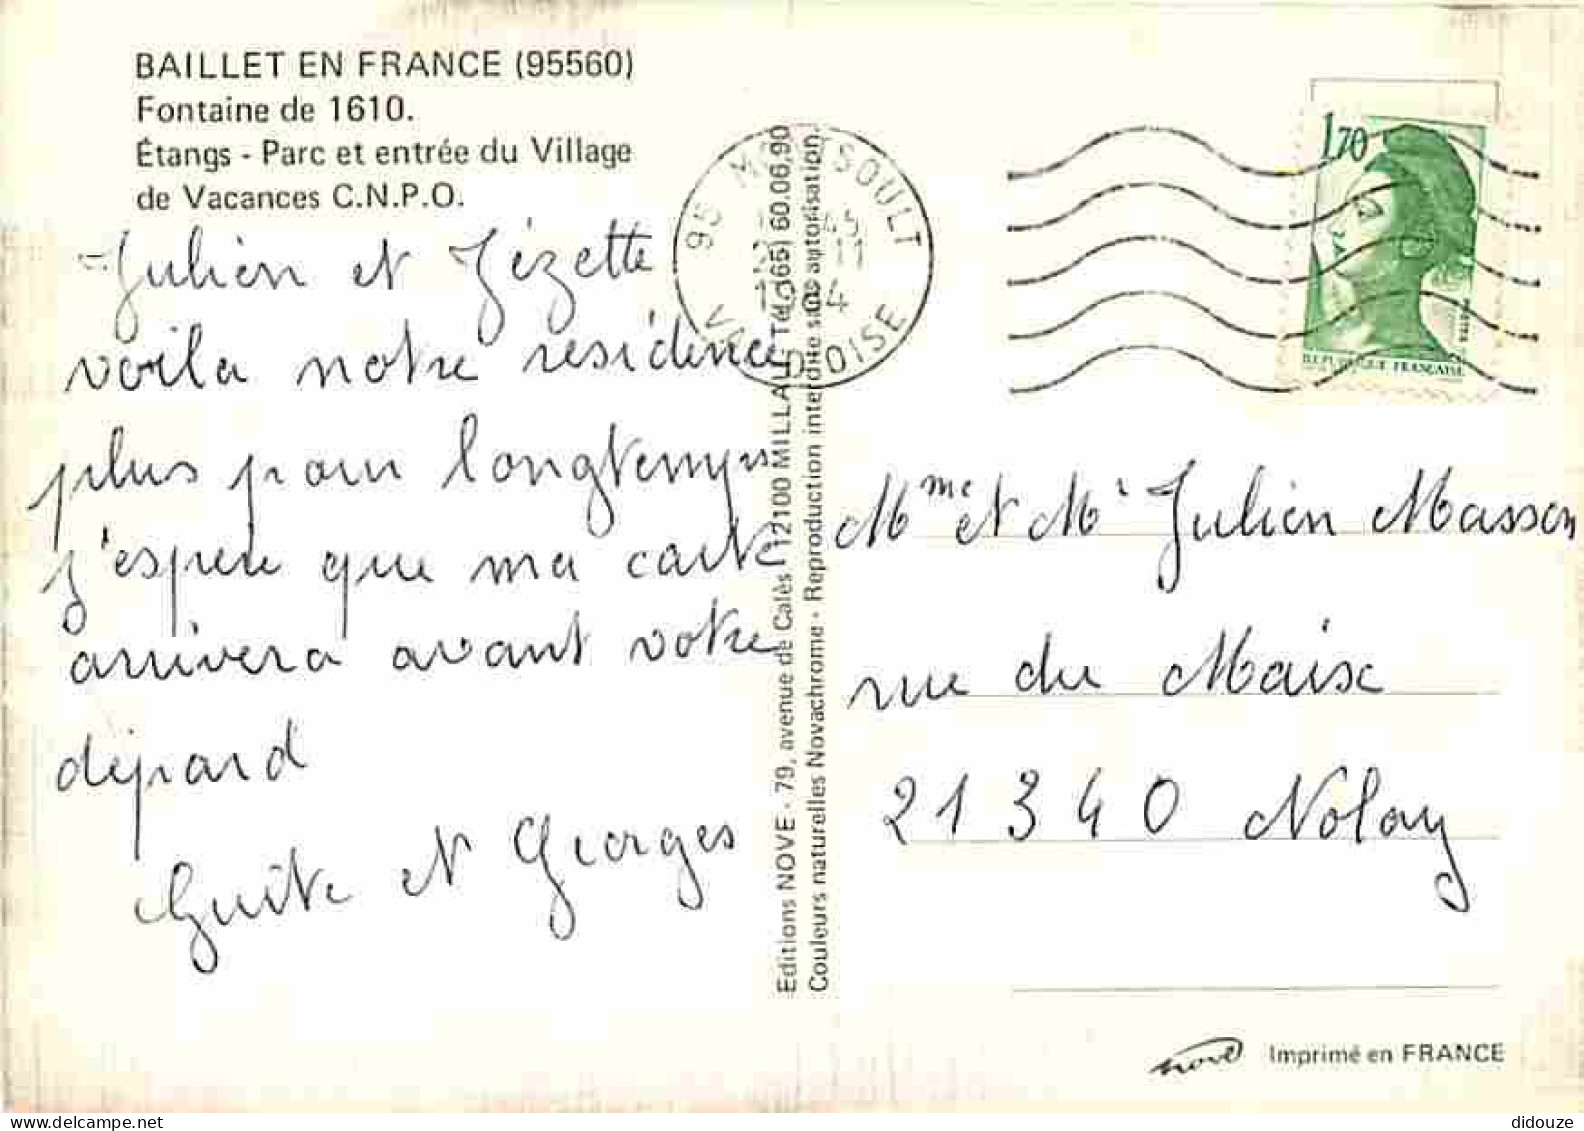 BAILLET EN FRANCE (95560)
Fontaine de 1610.
Étangs - Parc et entrée du Village
de Vacances C.N.P.O.
Julien et Zézette
voila notre résidence
plus pour longtemps
j'espere que ma carte
arrivera avant votre
dépard
Guite et Georges
Editions NOVE - 79, avenue de Calès - 12100 MILLAU Tél. (65) 60.06.90
Couleurs naturelles Novachrome - Reproduction interdite sans autorisation.
95 MONTSOULT
45
11
4
VAL D'OISE
1,70
REPUBLIQUE FRANÇAISE
Mme et Mr Julien Masson
rue du Maix
21340 Nolay
nove Imprimé en FRANCE
didouze